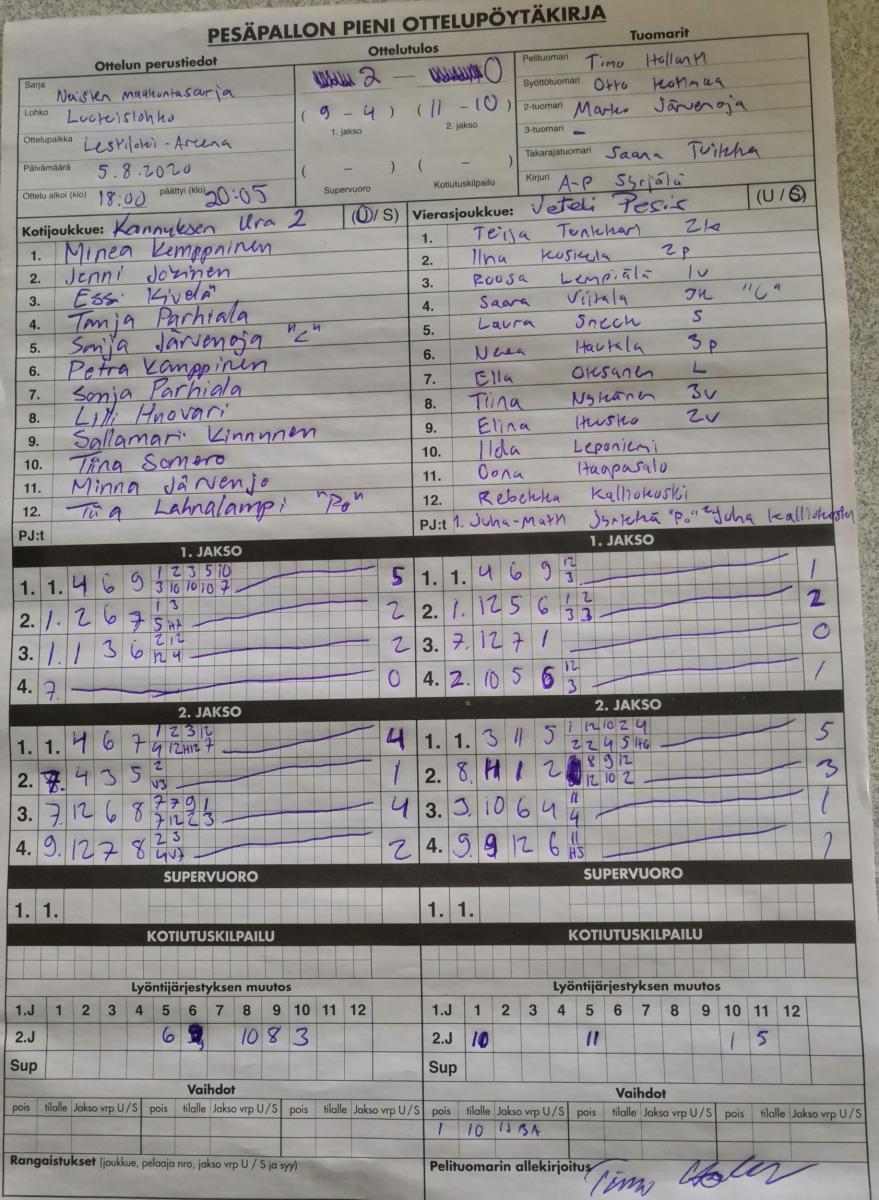 PESÄPALLON PIENI OTTELUPÖYTÄKIRJA
Ottelun perustiedot
Sarja Naisten maakuntasarja
Lohko Luoteislohko
Ottelupaikka Lestijoki-Areena
Päivämäärä 5.8.2020
Ottelu alkoi (klo) 18:00 päättyi (klo) 20:05
Ottelutulos
2 - 0
( 9 - 4 ) ( 11 - 10 )
1. jakso 2. jakso
( - ) ( - )
Supervuoro Kotiutuskilpailu
Tuomarit
Pelituomari Timo
Syöttötuomari Otto
2-tuomari Marko Järvenoja
3-tuomari -
Takarajatuomari Saana Tuikka
Kirjuri A-P Syrjälä
Kotijoukkue: Kannuksen Ura 2 (U/S)
1. Minea Kemppainen
2. Jenni Jokinen
3. Essi Kivelä
4. Tanja Parhiala
5. Sonja Järvenoja "C"
6. Petra Kamppinen
7. Sonja Parhiala
8. Lilli Huovari
9. Sallamari Kinnunen
10. Tiina Somero
11. Minna Järvenjo
12. Tiia Lahnalampi "Po"
PJ:t
Vierasjoukkue: Veteli Pesis (U/S)
1. Teija Tunkkari 2k
2. Iina Koskela 2p
3. Roosa Lempiälä 1v
4. Saara Viitala JK "C"
5. Laura Snech S
6. Neea Hautala 3p
7. Ella Oksanen L
8. Tiina Nykänen 3v
9. Elina Huusko 2v
10. Ilda Leponiemi
11. Oona Haapasalo
12. Rebekka Kalliokoski
PJ:t 1. Juha-Matti Jyrkkä "P." 2 Juha Kalliokoski
1. JAKSO
1. 1. 4 6 9 1 2 3 5 10 5
3 10 10 10 7
2. 1. 2 6 7 1 3 2
5 H7
3. 1. 1 3 6 2 12 2
12 4
4. 7. 0
1. JAKSO
1. 1. 4 6 9 12 1
3
2. 1. 12 5 6 1 2 2
3 3
3. 7. 12 7 1 0
4. 2. 10 5 6 12 1
3
2. JAKSO
1. 1. 4 6 7 1 2 3 12 4
4 12 H12 7
2. 8. 4 3 5 2 1
V3
3. 7. 12 6 8 7 7 9 1 4
7 12 2 3
4. 9. 12 7 8 2 3 2
4 V7
2. JAKSO
1. 1. 3 11 5 1 12 10 2 4 5
2 2 4 5 H6
2. 8. 11 1 2 8 9 12 3
12 10 2
3. 3. 10 6 4 11 1
4
4. 9. 9 12 6 11 1
H5
SUPERVUORO
1. 1.
SUPERVUORO
1. 1.
KOTIUTUSKILPAILU
KOTIUTUSKILPAILU
Lyöntijärjestyksen muutos
1.J 1 2 3 4 5 6 7 8 9 10 11 12
2.J 6 10 8 3
Sup
Lyöntijärjestyksen muutos
1.J 1 2 3 4 5 6 7 8 9 10 11 12
2.J 10 11 1 5
Sup
Vaihdot
pois tilalle Jakso vrp U/S pois tilalle Jakso vrp U/S pois tilalle Jakso vrp U/S
Vaihdot
pois tilalle Jakso vrp U/S pois tilalle Jakso vrp U/S pois tilalle Jakso vrp U/S
1 10 1J 3A
Rangaistukset (joukkue, pelaaja nro, jakso vrp U / S ja syy)
Pelituomarin allekirjoitus Timo